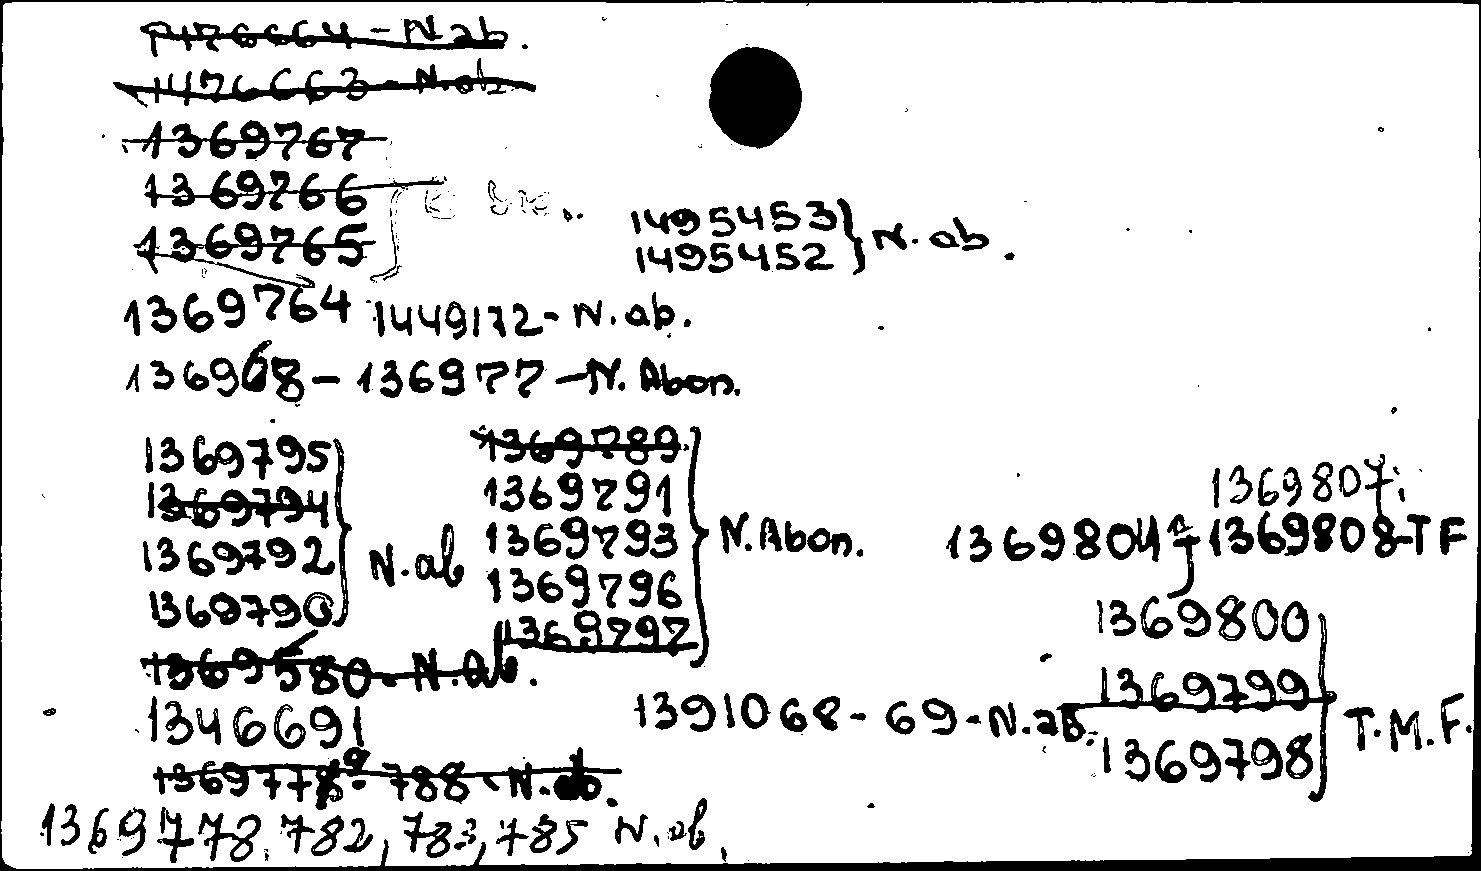 1476664 - N ab.
1476663 - N. ab.
1369767
1369766
1369765
1495453 } N. ab.
1495452
1369764 1449172 - N. ab.
1369768 - 136977 - N. Abon.
1369795
1369794
1369792
1369790
N. ab
1369789
1369791
1369793
1369796
1369797
N. Abon.
1369807
1369804 1369808 - TF
1369580 - N. Ab.
1346691
1391068 - 69 - N. ab.
1369800
1369799
1369798
T. M. F.
788 - N. ab.
1369778, 782, 783, 785 N. ab,